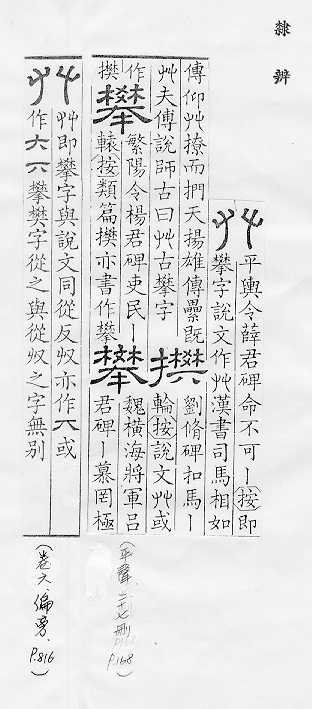 隸辨
艸 平輿令薛君碑命不可丨按即
攀字說文作艸漢書司馬相如
傳仰艸撩而捫天揚雄傳纍既
艸夫傅說師古曰艸古攀字
㩫 劉脩碑扣馬丨
輪按說文艸或
作㩫
攀 繁陽令楊君碑吏民丨
轅按類篇㩫亦書作攀
攀 魏橫海將軍呂
君碑丨慕罔極
艸 艸即攀字與說文同從反収亦作丌或
作大六攀樊字從之與從収之字無別
(平聲.二十七刪 P.168)
(卷六.偏旁. P.816)